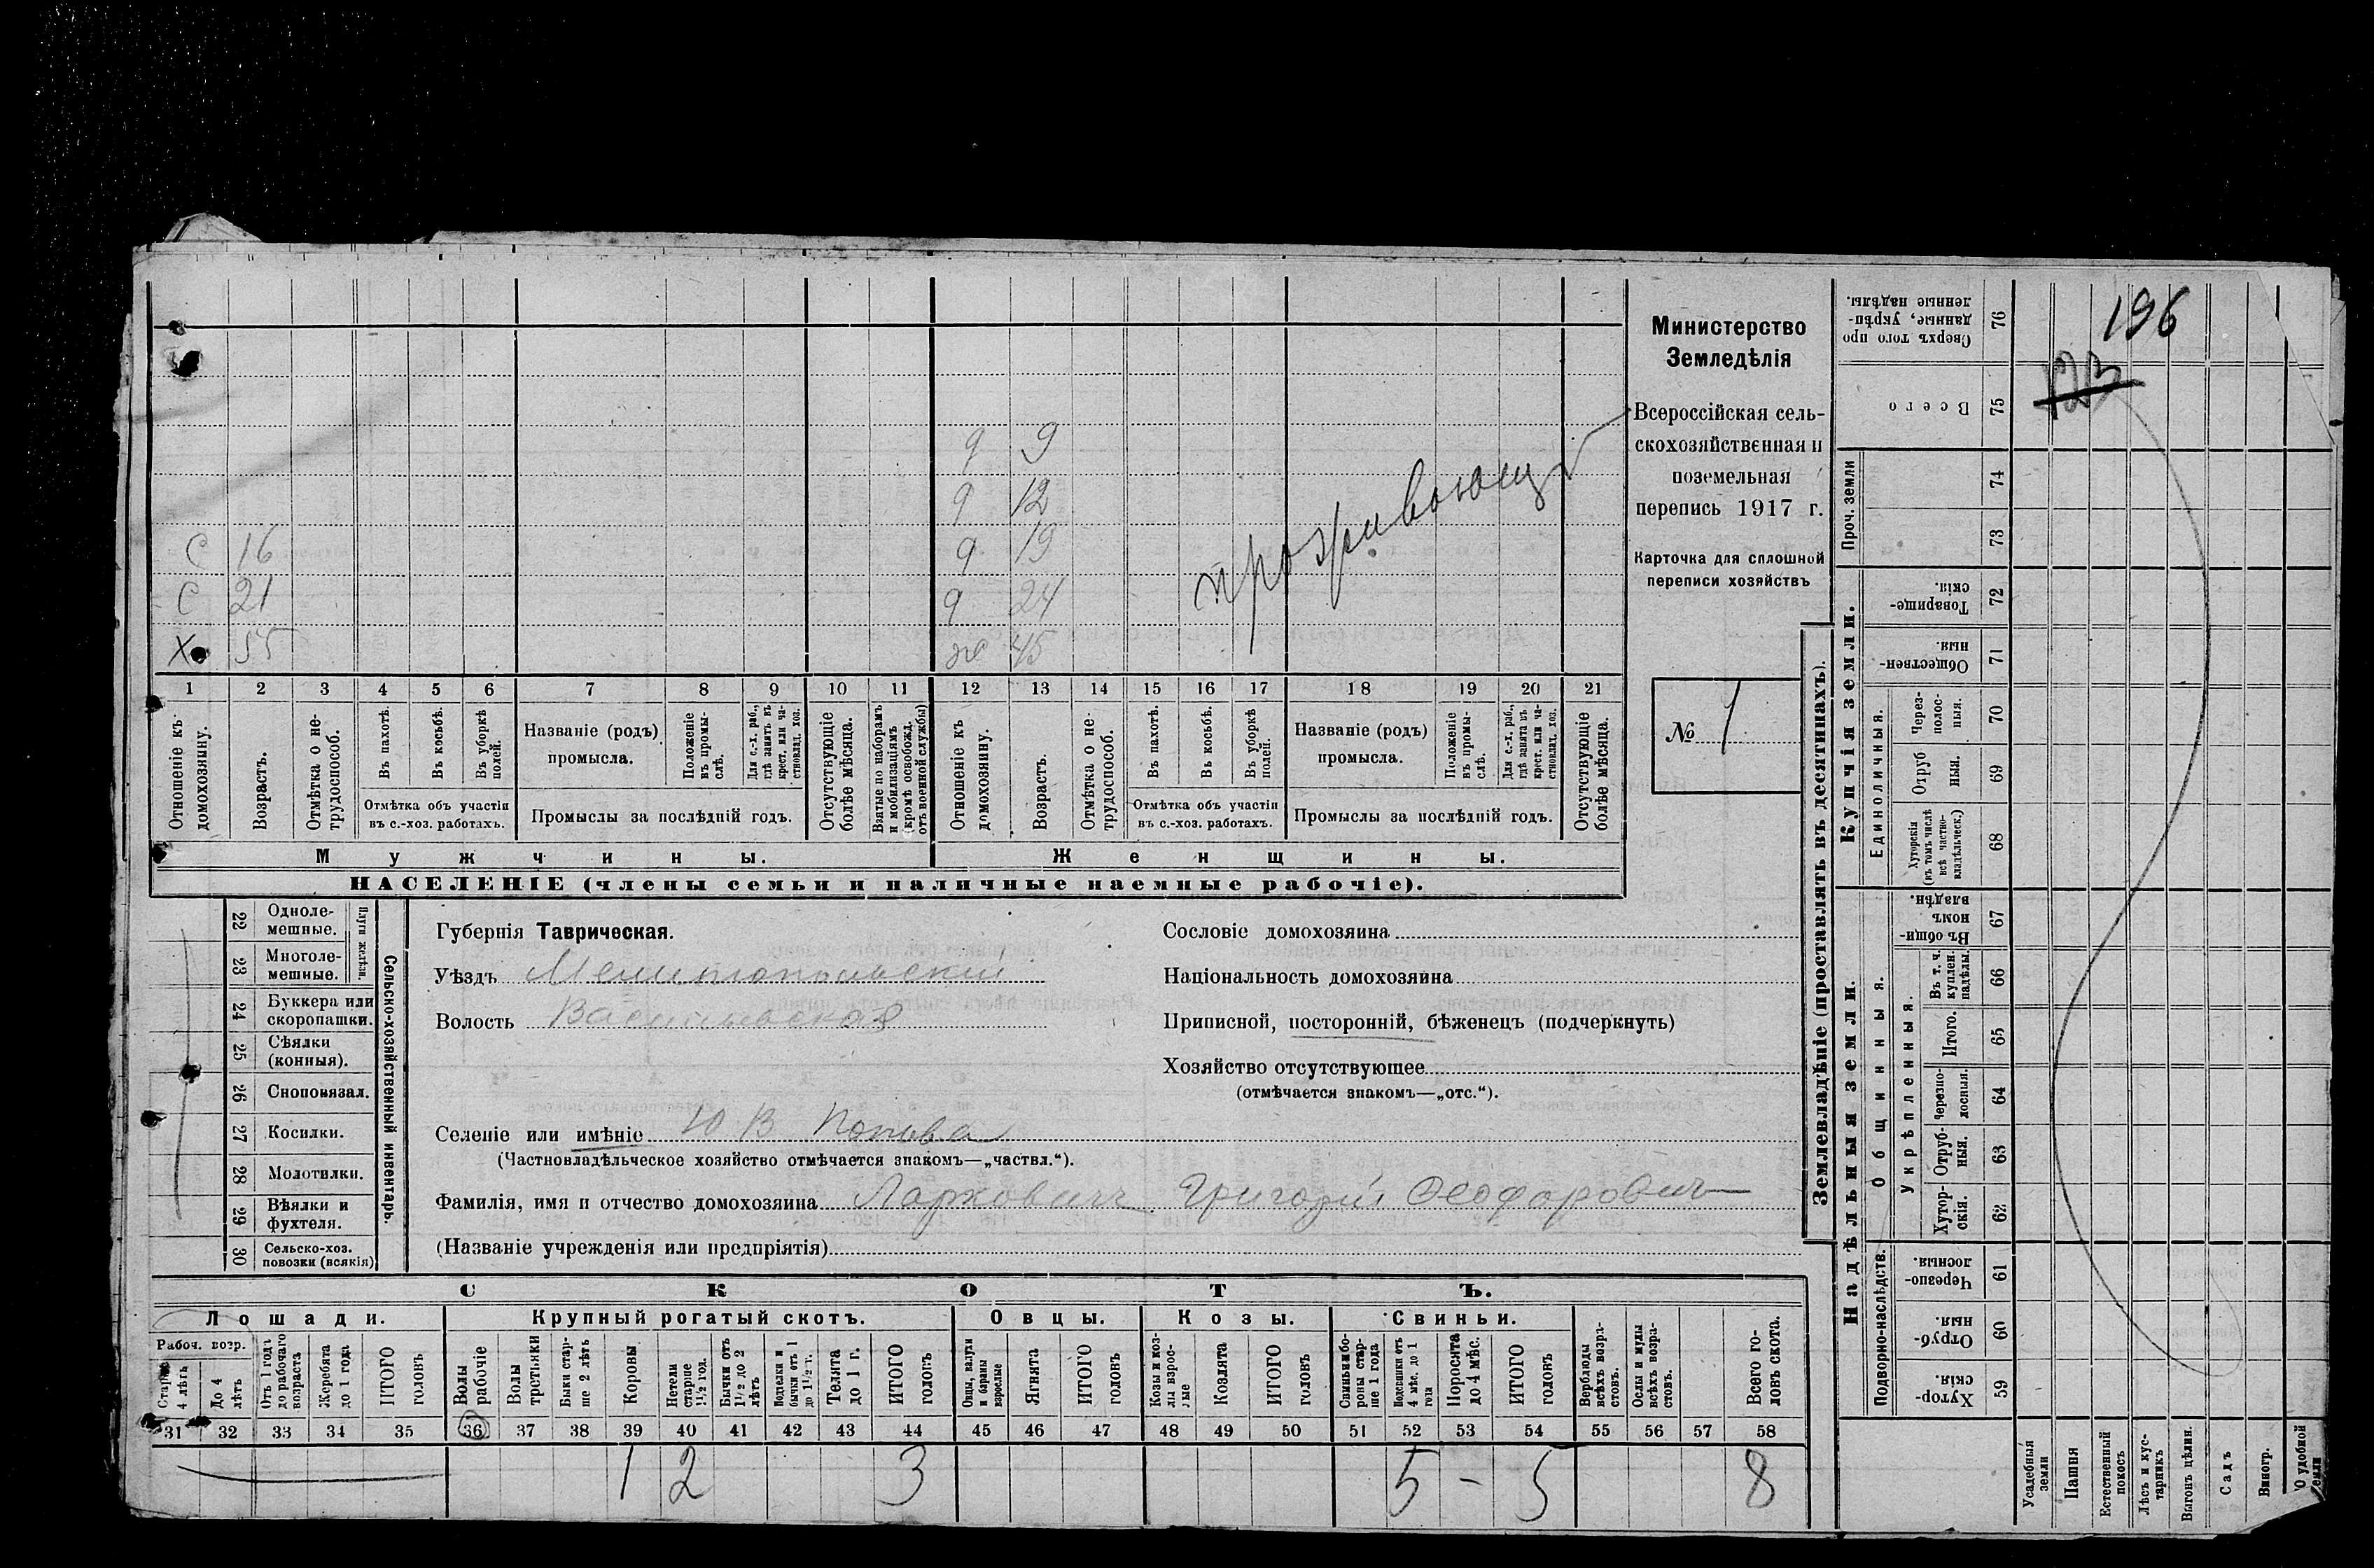 196
123
Министерство
Земледѣлія
Всероссійская сель-
скохозяйственная и
поземельная
перепись 1917 г.
Карточка для сплошной
переписи хозяйствъ
№ 1
9 9
9 12
С 16 9 19
С 21 9 24
Х 55 ж 45
проживающ
1 2 3 4 5 6 7 8 9 10 11 12 13 14 15 16 17 18 19 20 21
Отношеніе къ домохозяину.
Возрастъ.
Отмѣтка о не-трудоспособ.
Въ пахотѣ.
Въ косьбѣ.
Въ уборкѣ полей.
Отмѣтка объ участіи
въ с.-хоз. работахъ.
Названіе (родъ)
промысла.
Положеніе въ промы-слѣ.
Для с.-х. раб., гдѣ занятъ въ крест. или ча-стновлад. хоз.
Промыслы за послѣдній годъ.
Отсутствующіе болѣе мѣсяца.
Взятые по наборамъ и мобилизаціямъ (кромѣ освобожд. отъ военной службы)
Отношеніе къ домохозяину.
Возрастъ.
Отмѣтка о не-трудоспособ.
Въ пахотѣ.
Въ косьбѣ.
Въ уборкѣ полей.
Отмѣтка объ участіи
въ с.-хоз. работахъ.
Названіе (родъ)
промысла.
Положеніе въ промы-слѣ.
Для с.-х. раб., гдѣ занята въ крест. или ча-стновлад. хоз.
Промыслы за послѣдній годъ.
Отсутствующіе болѣе мѣсяца.
Мужчины. Женщины.
НАСЕЛЕНІЕ (члены семьи и наличные наемные рабочіе).
22 Одноле-мешные.
23 Многоле-мешные.
Плуги желѣзн.
24 Буккера или скоропашки.
25 Сѣялки (конныя).
26 Сноповязал.
27 Косилки.
28 Молотилки.
29 Вѣялки и фухтеля.
30 Сельско-хоз. повозки (всякія)
Сельско-хозяйственный инвентарь.
Губернія Таврическая.
Уѣздъ Мелитопольскій
Волость Васильевская
Селеніе или имѣніе Ю В Попова
(Частновладѣльческое хозяйство отмѣчается знакомъ—„частвл.“).
Фамилія, имя и отчество домохозяина Ларковичъ Григорій Феодорович
(Названіе учрежденія или предпріятія)
Сословіе домохозяина
Національность домохозяина
Приписной, посторонній, бѣженецъ (подчеркнуть)
Хозяйство отсутствующее
(отмѣчается знакомъ—„отс.“).
СКОТЪ.
Лошади. Крупный рогатый скотъ. Овцы. Козы. Свиньи.
Рабоч. возр.
Старше 4 лѣтъ
До 4 лѣтъ
Отъ 1 года до рабочаго возраста
Жеребята до 1 года
ИТОГО головъ
Волы рабочіе
Волы третьяки
Быки стар-ше 2 лѣтъ
Коровы
Нетели старше 1½ год.
Бычки отъ 1½ до 2 лѣтъ
Подтелки и бычки отъ 1 до 1½ г.
Телята до 1 г.
ИТОГО головъ
Овцы, валухи и бараны взрослые
Ягнята
ИТОГО головъ
Козы и коз-лы взрос-лые
Козлята
ИТОГО головъ
Свиньи и бо-роны стар-ше 1 года
Подсвинки отъ 4 мѣс. до 1 года
Поросята до 4 мѣс.
ИТОГО головъ
Верблюды всѣхъ возра-стовъ.
Ослы и мулы всѣхъ возра-стовъ.
Всего го-ловъ скота.
31 32 33 34 35 36 37 38 39 40 41 42 43 44 45 46 47 48 49 50 51 52 53 54 55 56 57 58
1 2 3 5 - 5 8
Землевладѣніе (проставлять въ десятинахъ).
Купчія земли.
Проч. земли
Единоличныя.
Сверхъ того про данные, укрѣп-ленные надѣлы. 76
Всего 75
74
73
Товарище-скія. 72
Обществен-ныя 71
Через-полос-ныя. 70
Отруб ныя. 69
Хуторскія (въ томъ числѣ всѣ частно-владѣльческ.) 68
Надѣльныя земли.
Общинныя.
Укрѣпленныя.
Въ общи-номъ владѣн. 67
Въ т. ч. куплен. надѣлы. 66
Итого. 65
Черезпо-лосныя. 64
Отруб-ныя. 63
Хутор-скія. 62
Подворно-наслѣдств.
Черезпо-лосныя 61
Отруб-ныя. 60
Хутор-скія. 59
Усадебныя земли
Пашня
Естественный покосъ
Лѣсъ и кус-тарникъ
Выгонъ цѣлин.
Садъ
Виногр.
О удобной